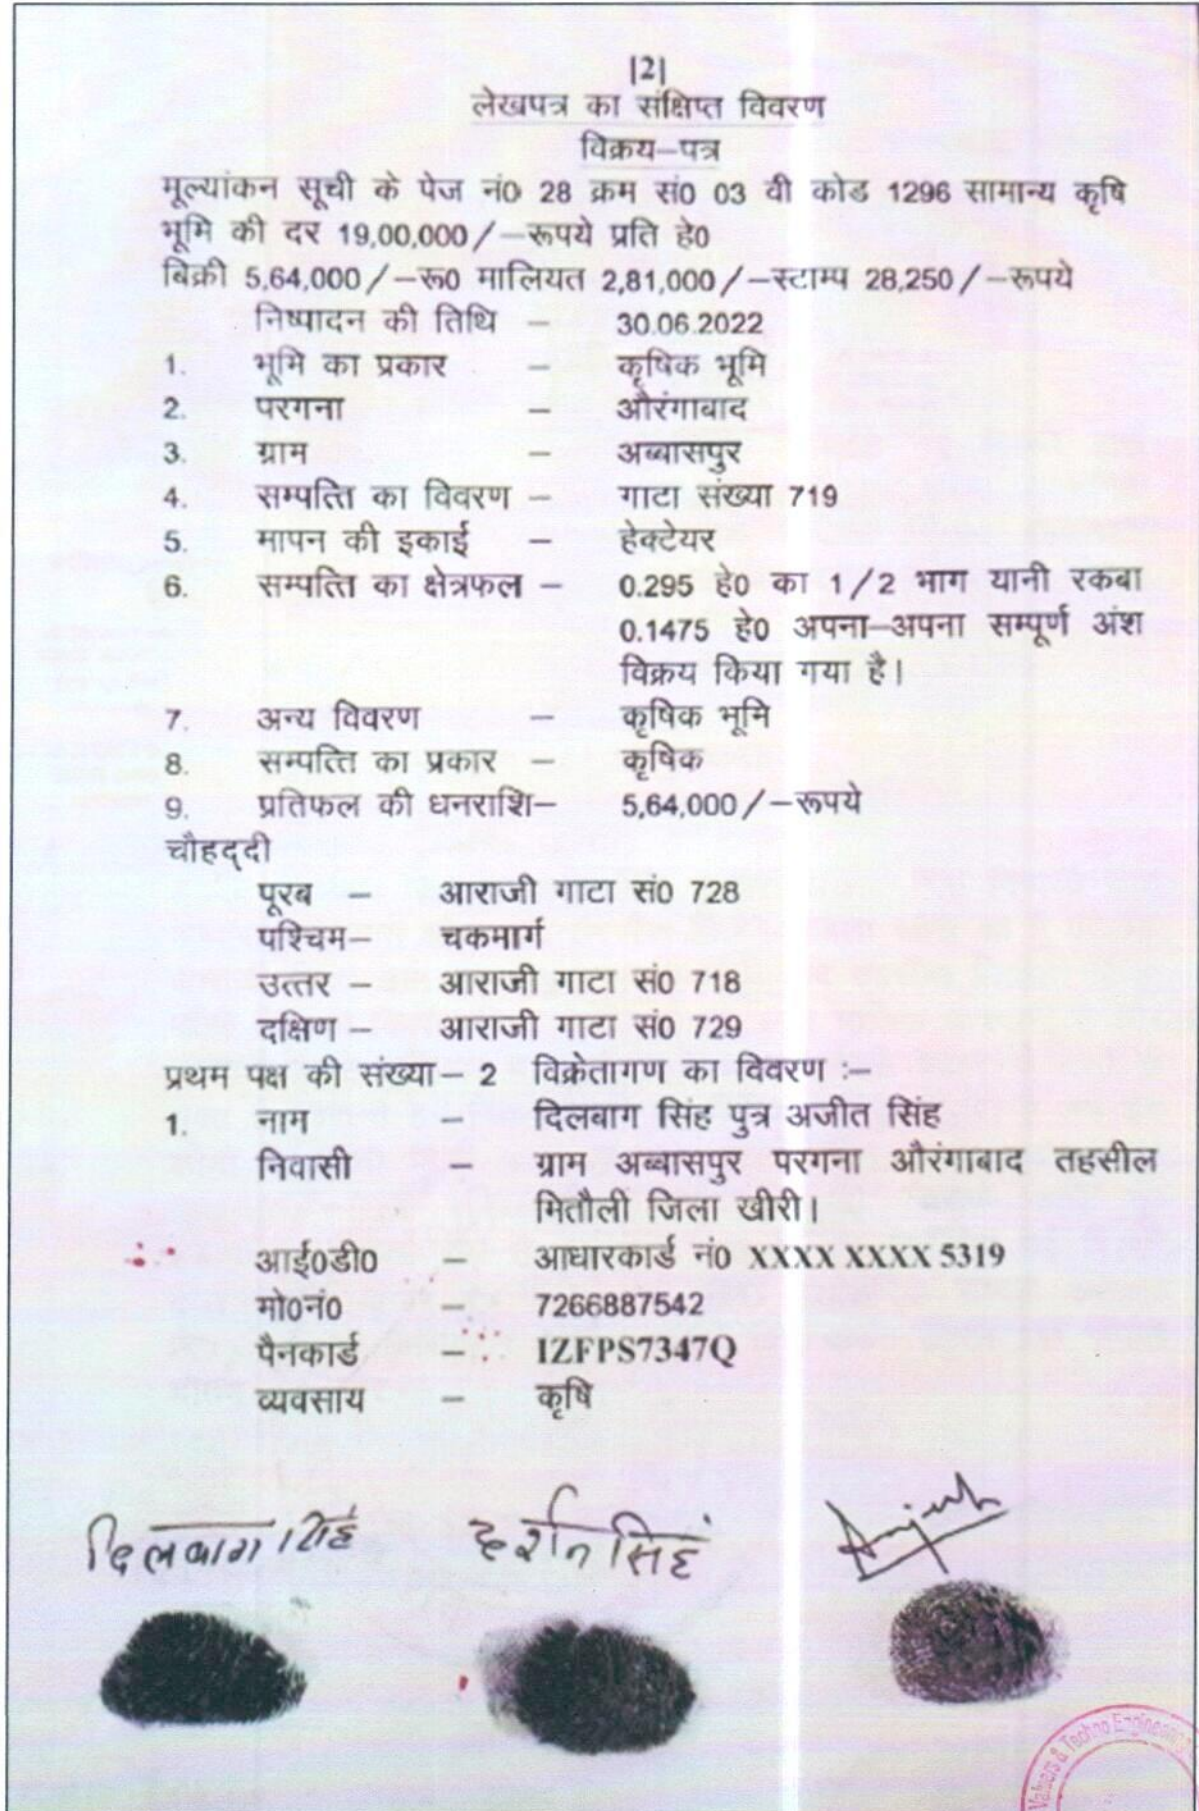 |2|
लेखपत्र का संक्षिप्त विवरण
विक्रय–पत्र
मूल्यांकन सूची के पेज नं0 28 क्रम सं0 03 वी कोड 1296 सामान्य कृषि
भूमि की दर 19,00,000/–रूपये प्रति हे0
बिक्री 5,64,000/–रू0 मालियत 2,81,000/–स्टाम्प 28,250/–रूपये
निष्पादन की तिथि – 30.06.2022
1. भूमि का प्रकार – कृषिक भूमि
2. परगना – औरंगाबाद
3. ग्राम – अब्बासपुर
4. सम्पत्ति का विवरण – गाटा संख्या 719
5. मापन की इकाई – हेक्टेयर
6. सम्पत्ति का क्षेत्रफल – 0.295 हे0 का 1/2 भाग यानी रकबा
0.1475 हे0 अपना–अपना सम्पूर्ण अंश
विक्रय किया गया है।
7. अन्य विवरण – कृषिक भूमि
8. सम्पत्ति का प्रकार – कृषिक
9. प्रतिफल की धनराशि– 5,64,000/–रूपये
चौहद्दी
पूरब – आराजी गाटा सं0 728
पश्चिम– चकमार्ग
उत्तर – आराजी गाटा सं0 718
दक्षिण – आराजी गाटा सं0 729
प्रथम पक्ष की संख्या– 2 विक्रेतागण का विवरण :–
1. नाम – दिलबाग सिंह पुत्र अजीत सिंह
निवासी – ग्राम अब्बासपुर परगना औरंगाबाद तहसील
मितौली जिला खीरी।
आई0डी0 – आधारकार्ड नं0 XXXX XXXX 5319
मो0नं0 – 7266887542
पैनकार्ड – IZFPS7347Q
व्यवसाय – कृषि
दिलबाग सिंह दर्शन सिंह
Valuers & Techno Engineering